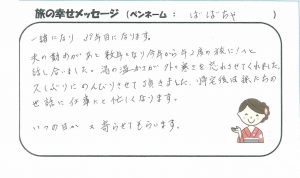 旅の幸せメッセージ（ペンネーム： ばばちゃ ）
一緒になり 37年目になります。
夫の勤めがあと数年となり今年から年2度の旅に!!と
話し合いました。湯の温かさが外の寒さを忘れさせてくれました。
久しぶりにのんびりさせて頂きました。帰宅後は孫たちの
世話に仕事にと忙しくなります。
いつの日か 又寄らせてもらいます。